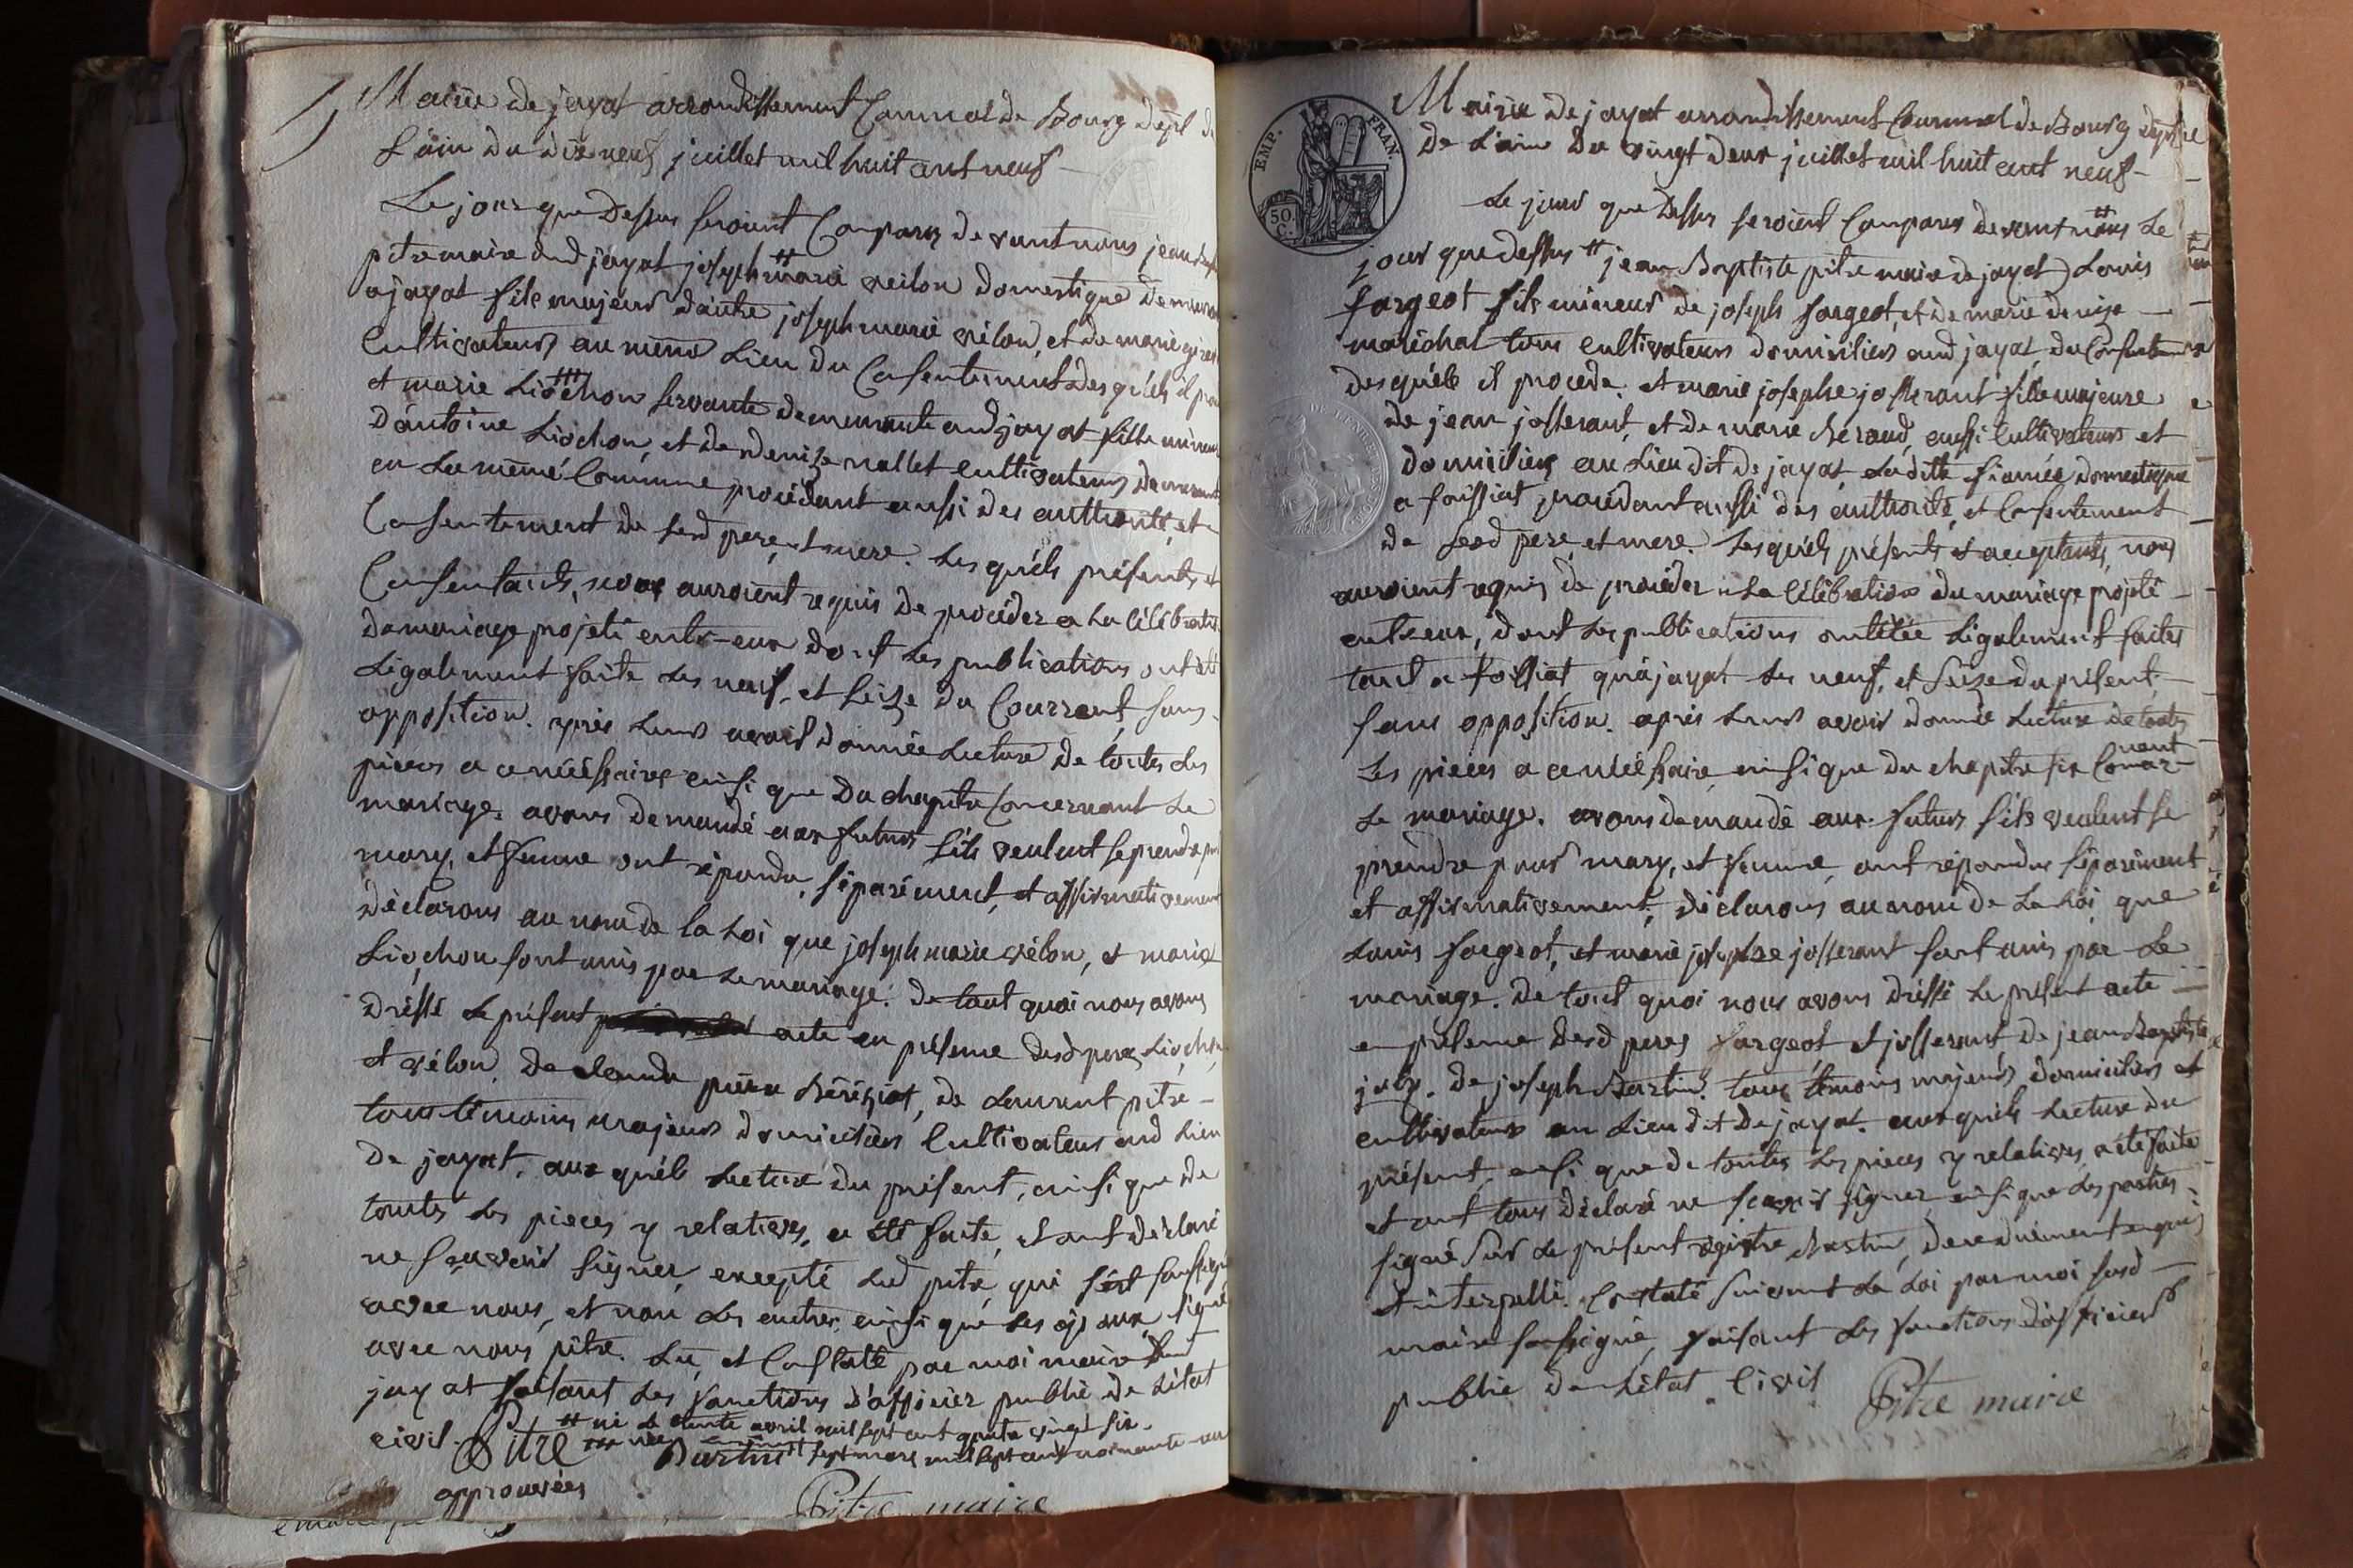 Mairie de jayat arrondissement Communal de Bourg dépt de
L'ain du dix neuf juillet mil huit cent neuf
Le jour que dessus seroient Comparus devant nous jean Bapt
pitre maire dud jayat joseph marie veilon domestique demeurant
a jayat fils majeur d'autre joseph marie vélon, et de marie
Cultivateurs au même Lieu du Consentement desquels il pro
et marie Liochon servante demeurante aud jayat fille mineure
d'antoine Liochon, et de denize nallet cultivateurs demeurant
en la même Commune procédant aussi des authorité, et
Consentement de sesd pere, et mere. Lesquéls présents et
Consentants, nous auroient requis de procéder a La célébration
du mariage projeté entr-eux dont Les publications ont été
Légalement faite les neuf, et seize du Courrant, sans
opposition. après Leurs avoir donnée Lecture de toutes Les
pieces a ce nécéssaires ainsi que du chapitre Concernant Le
mariage. avons demandé aux futurs s'ils veulent se prendre pr
mary, et femme ont répondu, séparément, et affirmativement
déclarons au nom de la Loi que joseph marie vélon, et marie
Liochon sont unis par Le mariage. De tout quoi nous avons
dréssé Le présent acte en présence desd peres Lioch
et vélon, de claude pierre Béréziat, de Laurent pitre
tous témoins majeurs domiciliés Cultivateurs aud Lieu
de jayat, aux quéls Lecture du présent, ainsi que de
toutes Les pieces y relatives, a été faite, et ont déclaré
ne sçavoir signer, excepté Led pitre, qui s'est soussigné
avec nous, et non Les autres, ainsi que Les époux, signé
avec nous pitre. Lu, et Constaté par moi maire dud
jayat faisant Les fonctions d'officier public de L'état
civil. Pitre né Le trente avril mil sept cent quatre vingt six
née sept mars mil sept cent nonante
approuvées
Pitre maire
Mairie de jayat arrondissement Communal de Bourg dept
EMP. FRAN.
50 C.
de L'ain du vingt deux juillet mil huit cent neuf
Le jour que dessus seroient Comparus devant nous Le
jour que dessus jean Baptiste pitre maire de jayat) Louis
fargeot fils mineur de joseph fargeot, et de marie denize
maréchal tous cultivateurs domiciliés aud jayat, du Consentement
desquéls il procède. et marie josephe josserant fille majeure
de jean josserant, et de marie Béraud, aussi cultivateurs et
domiciliés au Lieu dit de jayat, Ladite fiancée domestique
a foissiat procédant aussi des authorité, et Consentement
de sesd pere, et mere. Lesquéls présents et acceptants, nous
auroient requis de procéder a La Célébration du mariage projeté
entr'eux, dont Les publications ont étée Légalement faites
tant a foissiat qu'a jayat Les neuf, et seize du présent,
sans opposition. après Leurs avoir donnée Lecture de toutes
Les pieces a ce nécéssaire, ainsi que du chapitre six Concer-nant
Le mariage. avons demandé aux futurs s'ils veulent se
prendre pour mary, et femme, ont répondus séparément
et affirmativement, déclarons au nom de La Loi que
Louis fargeot, et marie josephe josserant sont unis par Le
mariage. De tout quoi nous avons dréssé Le présent acte
en présence desd peres fargeot et josserant de jean Baptiste
de joseph Bastin. tous témoins majeurs domiciliés et
cultivateurs au Lieu dit de jayat. aux quéls Lecture du
présent, ainsi que de toutes Les pieces y relatives, a été faite
et ont tous déclaré ne sçavoir signer, ainsi que Les parties
signé sur Le présent régistre Bastin, de ce duement enquis
et interpellé. Constaté suivant La Loi par moi susd
maire soussigné, faisant Les fonctions d'officier
public de L'état Civil
Pitre maire